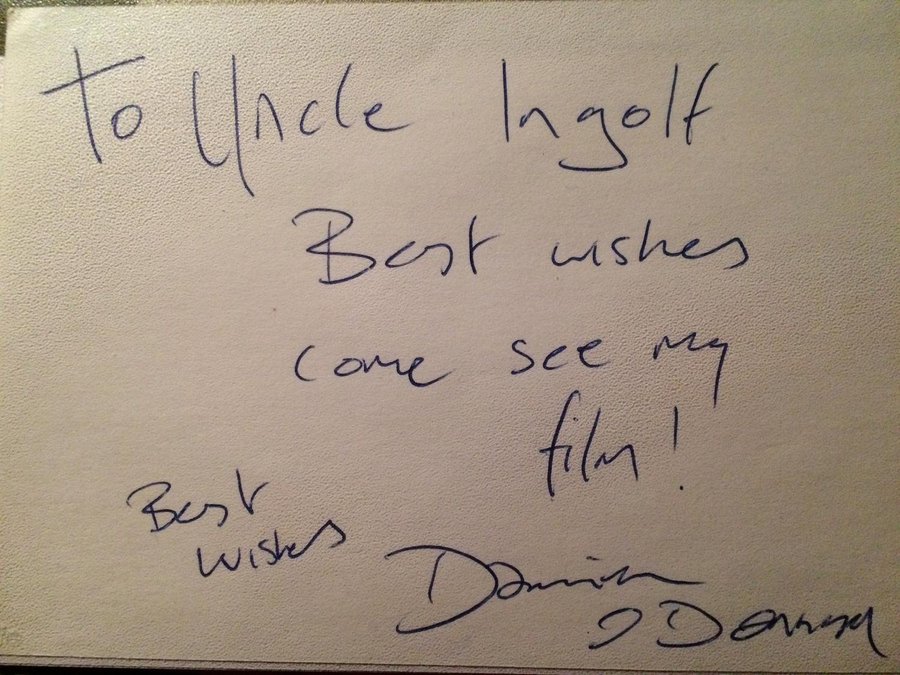 To Uncle Ingolf
Best wishes
come see my
film!
Best
wishes
Damien
O Donnell